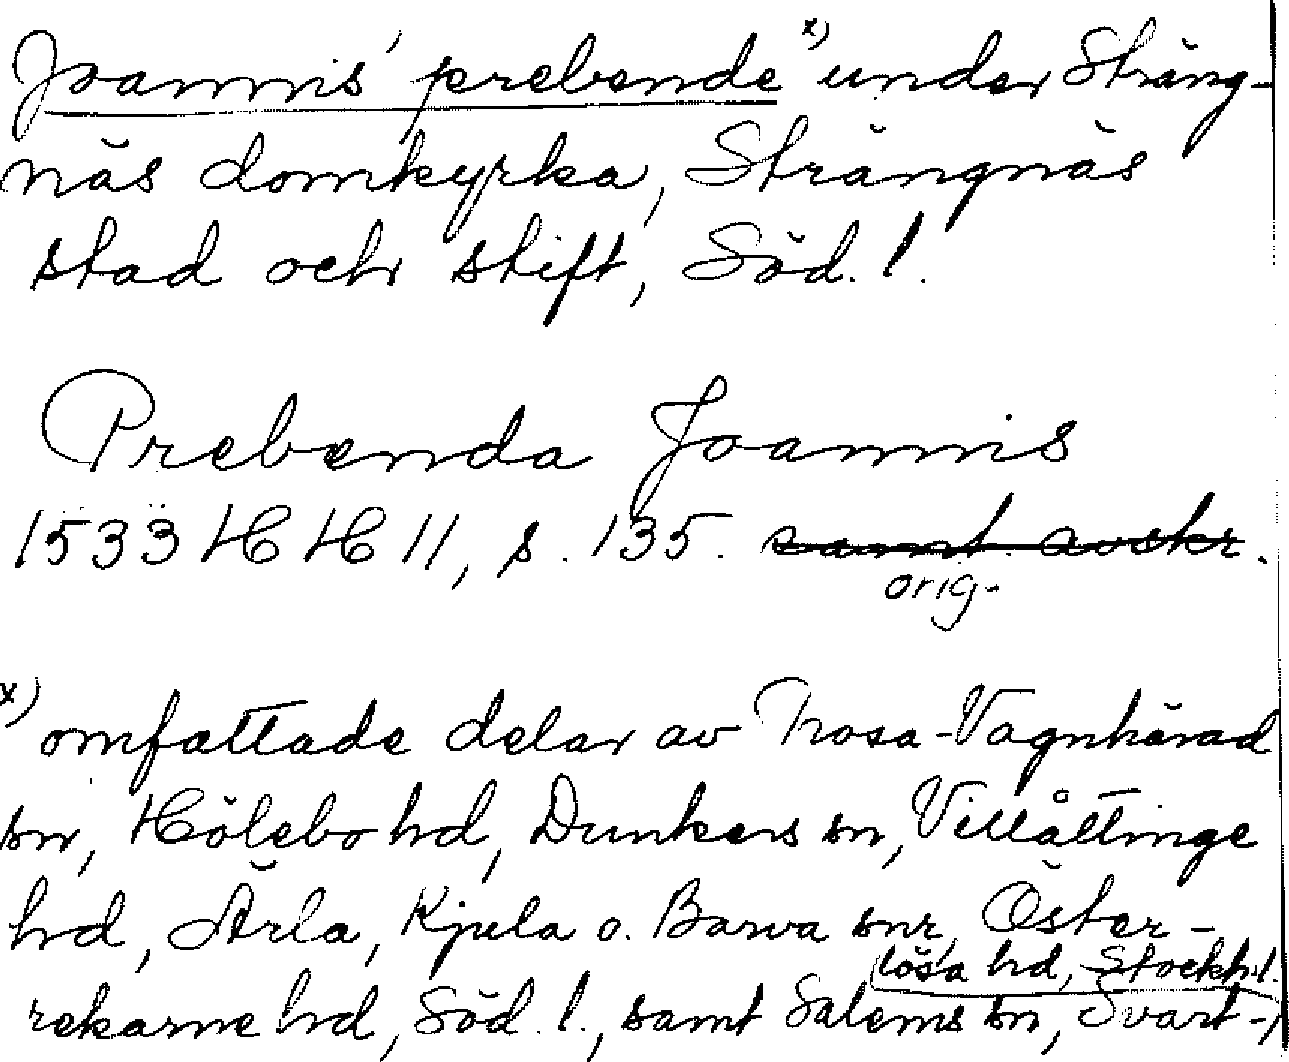 Joannis' prebende x) under Sträng-
näs domkyrka, Strängnäs
stad och stift, Söd. l.
Prebenda Joannis
1533 HH 11, s. 135. samt. avskr.
orig.
x) omfattade delar av Trosa-Vagnhärad
sn, Hölebo hd, Dunkers sn, Villåttinge
hd, Ärla, Kjula o. Barva snr, Öster-
rekarne hd, Söd. l., samt Salems sn, Svart-
lösa hd, Stockh. l.